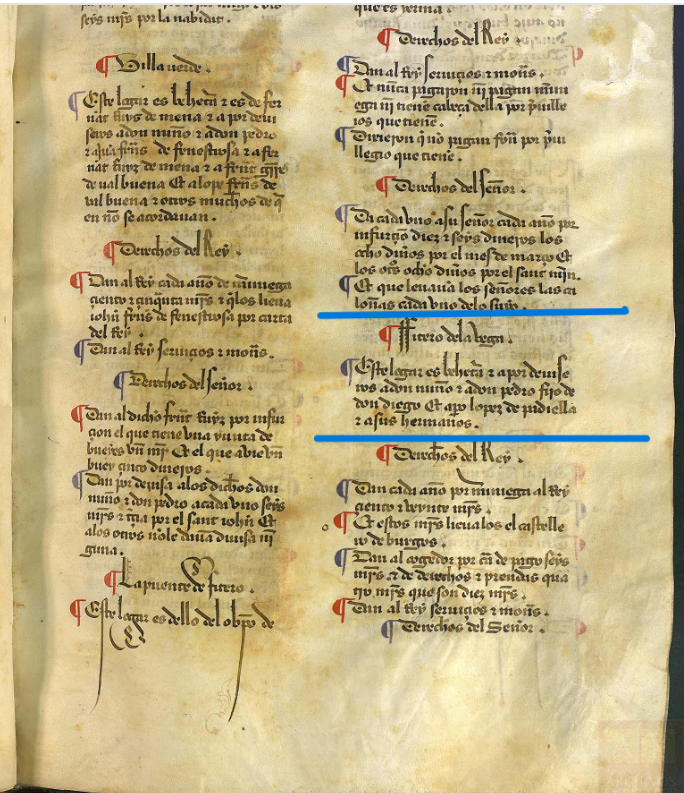 seys mrs por la nabidat.
Villa uerde.
Este logar es behetria z es de fer
nant ruys de mena z a por deui
seros a don nuño z a don pedro
z a frns de fenestrosa z a fer
nat ruys de mena z a frnt
de ual buena Et a lope frns de
val buena z otros muchos de q
en no se acordauan.
Derechos del Rey.
Dan al Rey cada año de martiniega
çiento z çinquenta mrs z q los lieua
iohn frns de fenestrosa por carta
del Rey.
Dan al Rey seruiçios z mon.
Derechos del señor.
Dan al dicho frnt Ruyz por infur
çion el que tiene vna yunta de
bueyes vn mr Et el que a vn
buey çinco dineros.
Dan por deuisa a los dichos don
nuño z don pedro a cada vno seys
mrs z tra por el sant iohn Et
a los otros nole daua diuisa ni
guna.
La puente de fitero.
Este logar es dello del obpo de
que es yerma.
Derechos del Rey
Dan al Rey seruiçios z mon.
Et nunca pagaron nin pagan mar
ega ni tiene cabeça della por preuille
ios que tiene.
Dixieron q no pagan fon por pui
llegio que tiene.
Derechos del señor.
Da cada vno a su señor cada año por
infurçio diez z seys dineros los
ocho dinos por el mes de março Et
los ocho dinos por el sant min.
Et que leuaua los señores las ca
lonnas cada vno de lo suyo.
ffitero dela vega.
Este logar es behetria z a por deuise
ros a don nuño z a don pedro fijo de
don diego Et a po lopez de padiella
z a sus hermanos.
Derechos del Rey.
Dan cada año por martiniega al Rey
çiento z veynte mrs.
Et estos mrs lieua los el castelle
ro de burgos.
Dan al cogedor por ca de pago seys
mrs z de derechos z prendas qua
tro mrs que son diez mrs.
Dan al Rey seruiçios z mon.
Derechos del Señor.